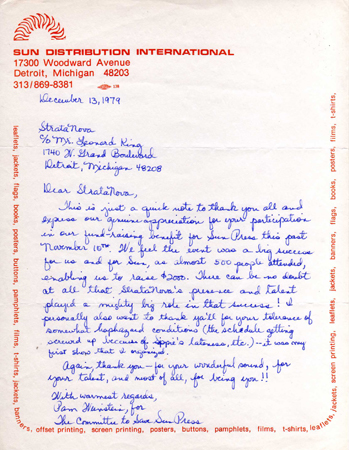 SUN DISTRIBUTION INTERNATIONAL
17300 Woodward Avenue
Detroit, Michigan 48203
313/869-8381
December 13, 1979
Strata Nova
c/o Mr. Leonard King
1740 W. Grand Boulevard
Detroit, Michigan 48208
Dear StrataNova,
This is just a quick note to thank you all and
express our genuine appreciation for your participation
in our fund-raising benefit for Sun Press this past
November 10th. We feel the event was a big success
for us and for Sun, as almost 500 people attended,
enabling us to raise $2000. There can be no doubt
at all that StrataNova's presence and talent
played a mighty big role in that success! I
personally also want to thank ya'll for your tolerance of
somewhat haphazard conditions (the schedule getting
screwed up because of lateness, etc.) – it was my
first show that I organized.
Again, thank you – for your wonderful sound, for
your talent, and most of all, for being you!!
With warmest regards,
Pam for
The Committee to Save Sun Press
leaflets, jackets, flags, books, posters, buttons, pamphlets, films, t-shirts, jackets, banners, offset printing, screen printing, posters, buttons, pamphlets, films, t-shirts, leaflets, jackets, screen printing, leaflets, jackets, banners, flags, books, posters, films, t-shirts,